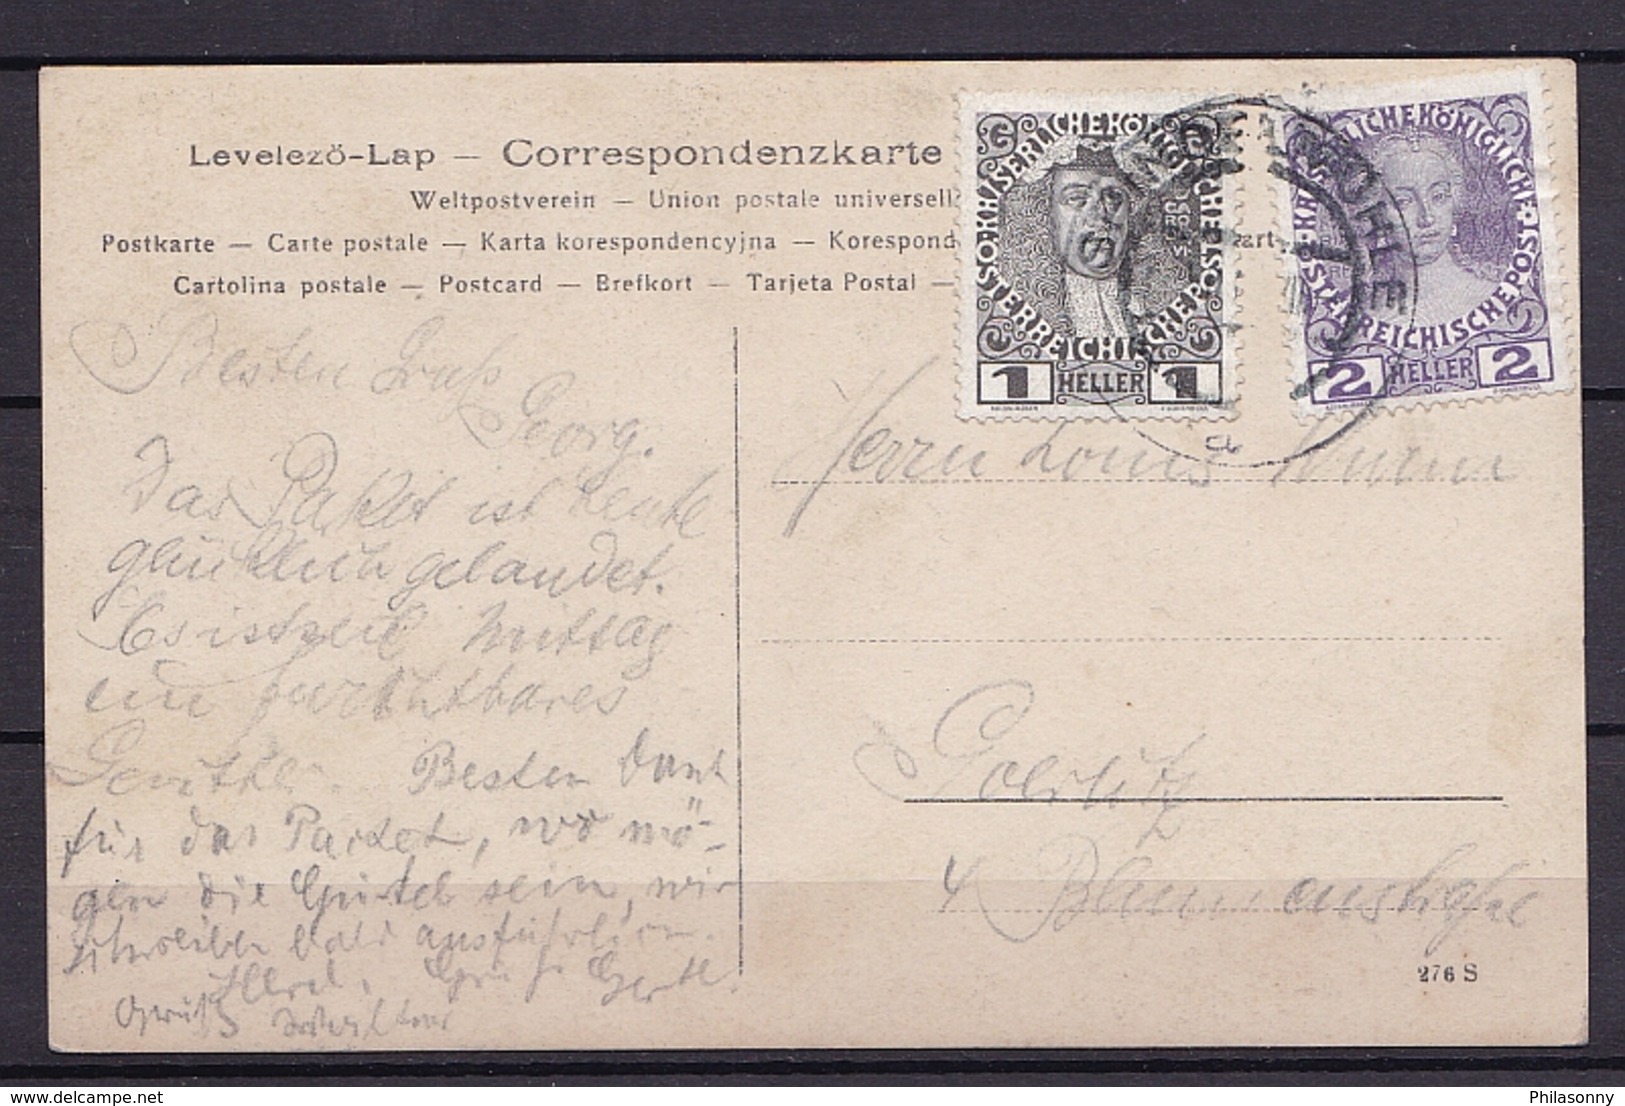 Levelező-Lap — Correspondenzkarte
Weltpostverein — Union postale universell
Postkarte — Carte postale — Karta korespondencyjna — Korespond
Cartolina postale — Postcard — Brefkort — Tarjeta Postal —
KAISERLICHE KÖNIGLICHE
ÖSTERREICHISCHE POST
1 HELLER 1
KAISERLICHE KÖNIGLICHE
ÖSTERREICHISCHE POST
2 HELLER 2
Besten Gruß
Georg.
Das Paket ist heute
glücklich gelandet.
Es ist Mittag
ein furchtbares
Besten Dank
für das Packet, wo mö-
gen die sein, wir
schreiben bald ausführlich.
Herzl. Gruß
Gruß
Herrn Louis
Goerlitz
4 Blumenstraße
276 S
Philasonny